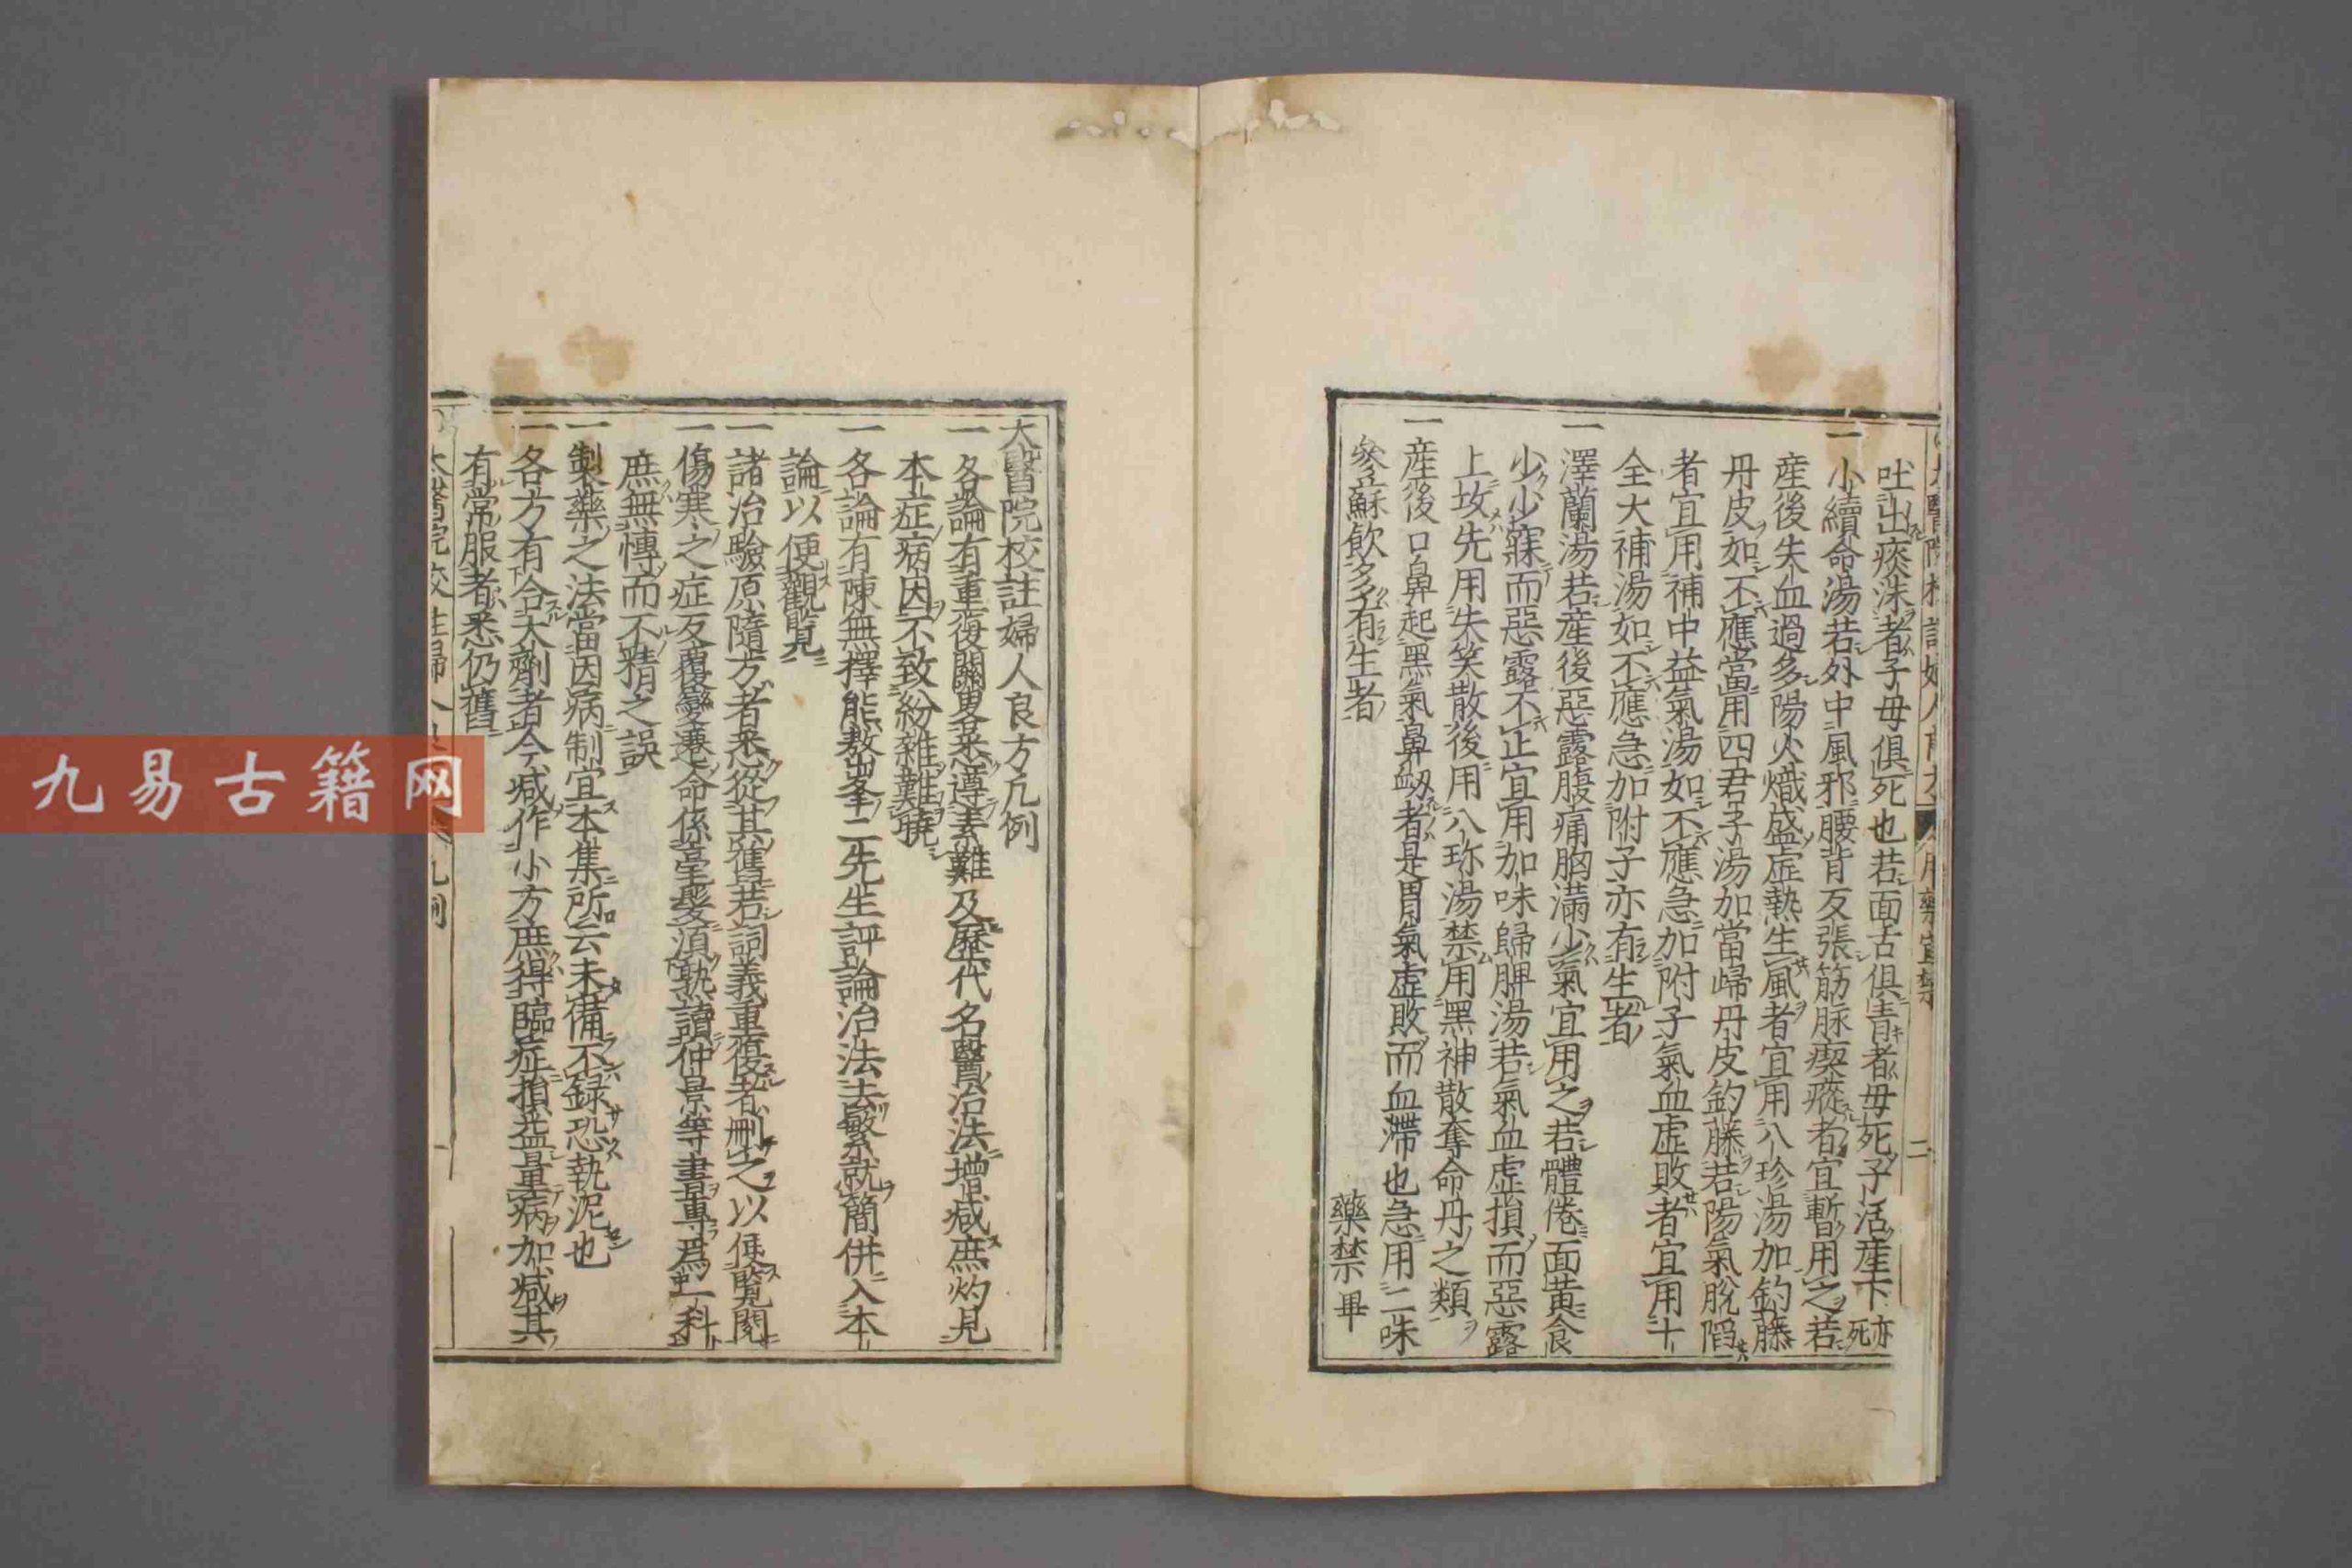 吐出痰沫者子毋俱死也若面舌俱青者毋死子活産下亦死
一小續命湯若外中風邪腰背反張筋脉瘈瘲者宜暫用之若
産後失血過多陽火熾盛虚熱生風者宜用八珍湯加釣藤
丹皮如不應當用四君子湯加當歸丹皮釣藤若陽氣脫陷
者宜用補中益氣湯如不應急加附子氣血虚敗者宜用十
全大補湯如不應急加附子亦有生者
一澤蘭湯若産後惡露腹痛胸滿少氣宜用之若體倦面黄食
少少寐而惡露不止宜用加味歸脾湯若氣血虚損而惡露
上攻先用失笑散後用八珎湯禁用黑神散奪命丹之類
一産後口鼻起黑氣鼻衂者是胃氣虚敗而血滯也急用二味
參蘇飲多有生者
藥禁畢
二
太醫院校註婦人良方凡例
一各論有重復闕畧悉遵素難及歷代名醫治法增減庶灼見
本症病因不致紛雜難曉
一各論有陳無擇熊鼇峯二先生評論治法去繁就簡併入本
論以便觀覽
一諸治驗原隨方者悉從其舊若詞義重復者刪之以便覧閱
一傷寒之症反覆變遷命係毫髮須熟讀仲景等書專爲一科
庶無慱而不精之誤
一製藥之法當因病制宜本集所云未備不録恐執泥也
一各方有合大劑者今減作小方庶得臨症損益量病加減其
有常服者悉仍舊
九易古籍网